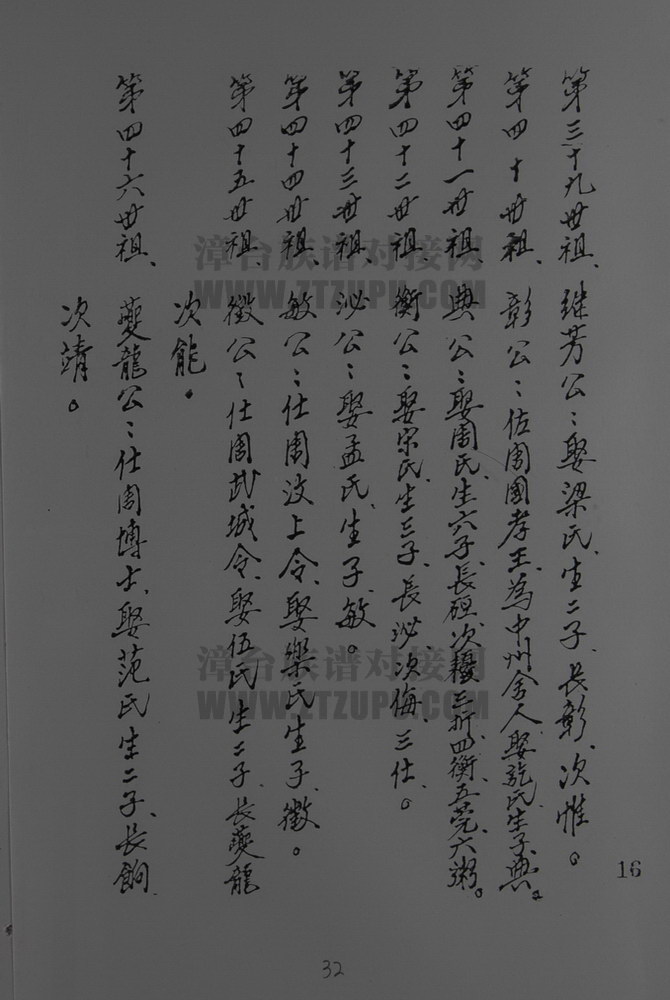 第三十九世祖、继芳公：娶梁氏、生二子、長彰、次惟。
第四十世祖、彰公：佐周國孝王、為中州舍人、娶施氏、生子典。
第四十一世祖、典公：娶周氏、生六子、長硜、次耰、三折、四衡、五莞、六粥。
第四十二世祖、衡公：娶宗氏、生三子、長泌、次侮、三仕。
第四十三世祖、泌公：娶孟氏、生子敏。
第四十四世祖、敏公：仕周汶上令、娶樂氏生子、徵。
第四十五世祖、徵公：仕周武城令、娶伍氏生二子、長夔龍
次能。
第四十六世祖、夔龍公：仕周博士、娶范氏生二子、長餉
次靖。
16
32
漳台族谱对接网
WWW.ZTZUPU.COM
漳台族谱对接网
WWW.ZTZUPU.COM